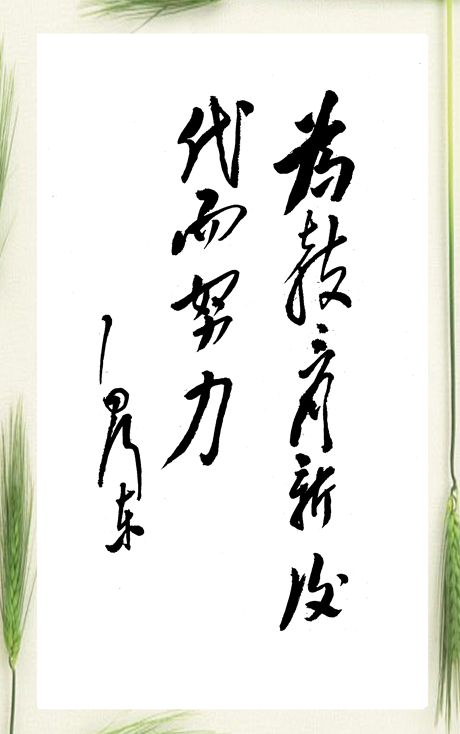 為教育新後
代而努力
毛澤東